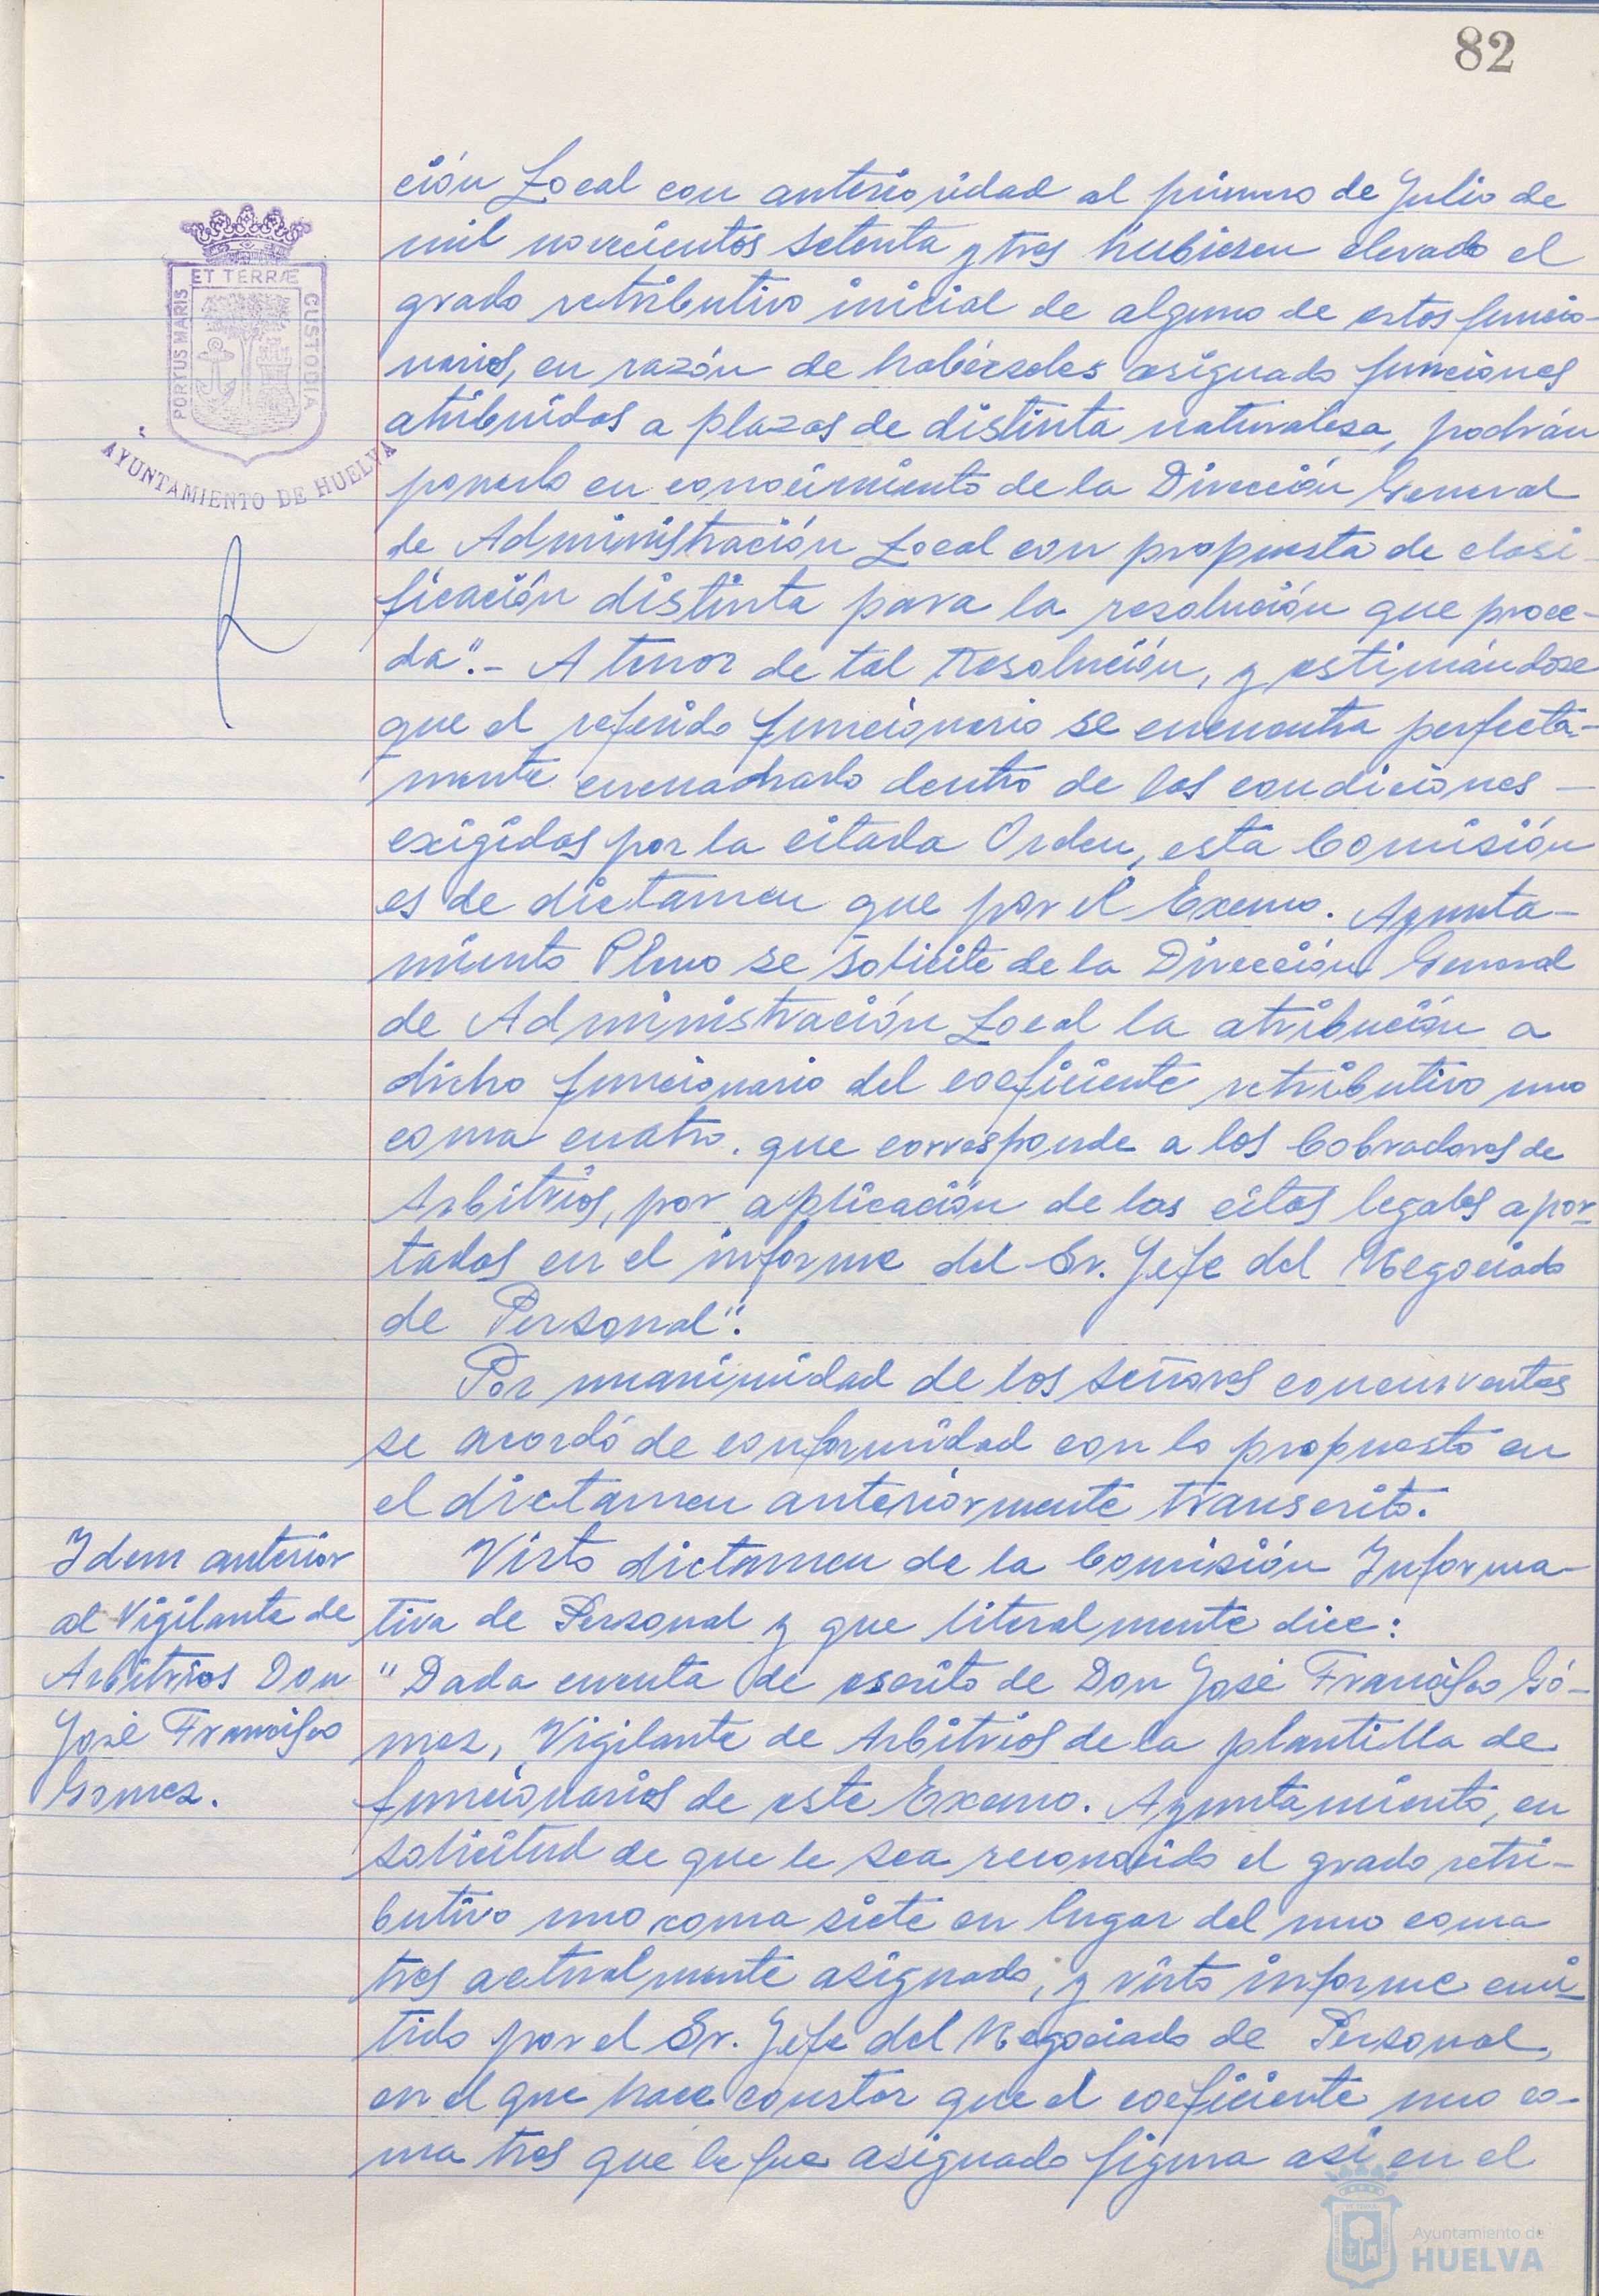 82
ción Local con anterioridad al primero de Julio de
mil novecientos setenta y tres hubiesen elevado el
grado retributivo inicial de alguno de estos funcio-
narios, en razón de habérseles asignado funciones
atribuidas a plazas de distinta naturaleza, podrán
ponerlo en conocimiento de la Dirección General
de Administración Local con propuesta de clasi-
ficación distinta para la resolución que proce-
da".- A tenor de tal Resolución, y estimándose
que el referido funcionario se encuentra perfecta-
mente encuadrado dentro de las condiciones -
exigidas por la citada Orden, esta Comisión
es de dictamen que por el Excmo. Ayunta-
miento Pleno se solicite de la Dirección General
de Administración Local la atribución a
dicho funcionario del coeficiente retributivo uno
coma cuatro, que corresponde a los Cobradores de
Arbitrios, por aplicación de las citas legales apor-
tadas en el informe del Sr. Jefe del Negociado
de Personal".
Por unanimidad de los señores concurrentes
se acordó de conformidad con lo propuesto en
el dictamen anteriormente transcrito.
Visto dictamen de la Comisión Informa-
tiva de Personal y que literalmente dice:
"Dada cuenta de escrito de Don José Francisco Gó-
mez, Vigilante de Arbitrios de la plantilla de
funcionarios de este Excmo. Ayuntamiento, en
solicitud de que le sea reconocido el grado retri-
butivo uno coma siete en lugar del uno coma
tres actualmente asignado, y visto informe emi-
tido por el Sr. Jefe del Negociado de Personal,
en el que hace constar que el coeficiente uno co-
ma tres que le fue asignado figura así en el
Idem anterior
al Vigilante de
Arbitrios Don
José Francisco
Gomez.
PORTUS MARIS
ET TERRÆ
CUSTODIA
AYUNTAMIENTO DE HUELVA
Ayuntamiento de
HUELVA